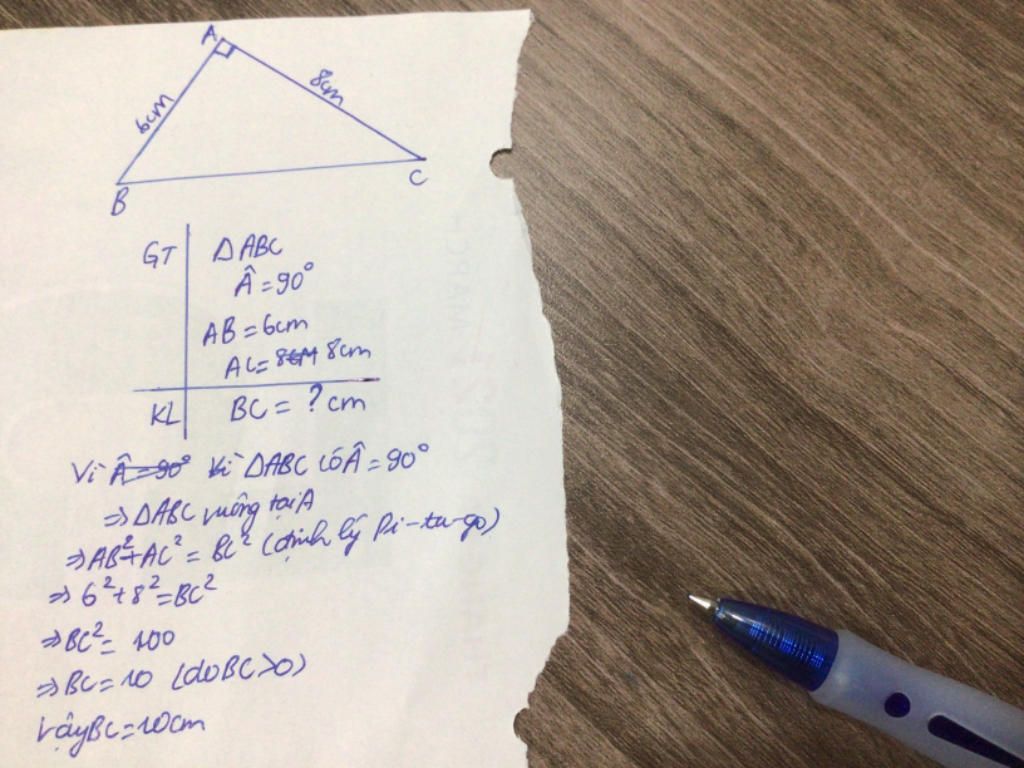 A
6cm
8cm
B
C
GT
ΔABC
Â = 90°
AB = 6cm
AC = 8cm 8cm
KL
BC = ? cm
Vì Â = 90° Vì ΔABC có Â = 90°
⇒ ΔABC vuông tại A
⇒ AB² + AC² = BC² (định lý Pi-ta-go)
⇒ 6² + 8² = BC²
⇒ BC² = 100
⇒ BC = 10 (do BC > 0)
Vậy BC = 10cm